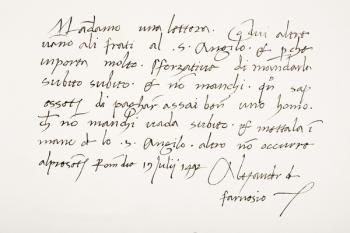 Mãdamo una lettera. qui altre
vano ali frati al .s. Angilo. et pche
inporta molto. sforzative di mandarla
subito subito. et nõ manchi. qñ sap
essoti di paghar assai ben uno homo.
nõ manchi vada subito. et mettala ĩ
mane de lo .s. Angilo. altro nõ occurre
Rom die 17 Julij 149
Alexandro de
farnesio